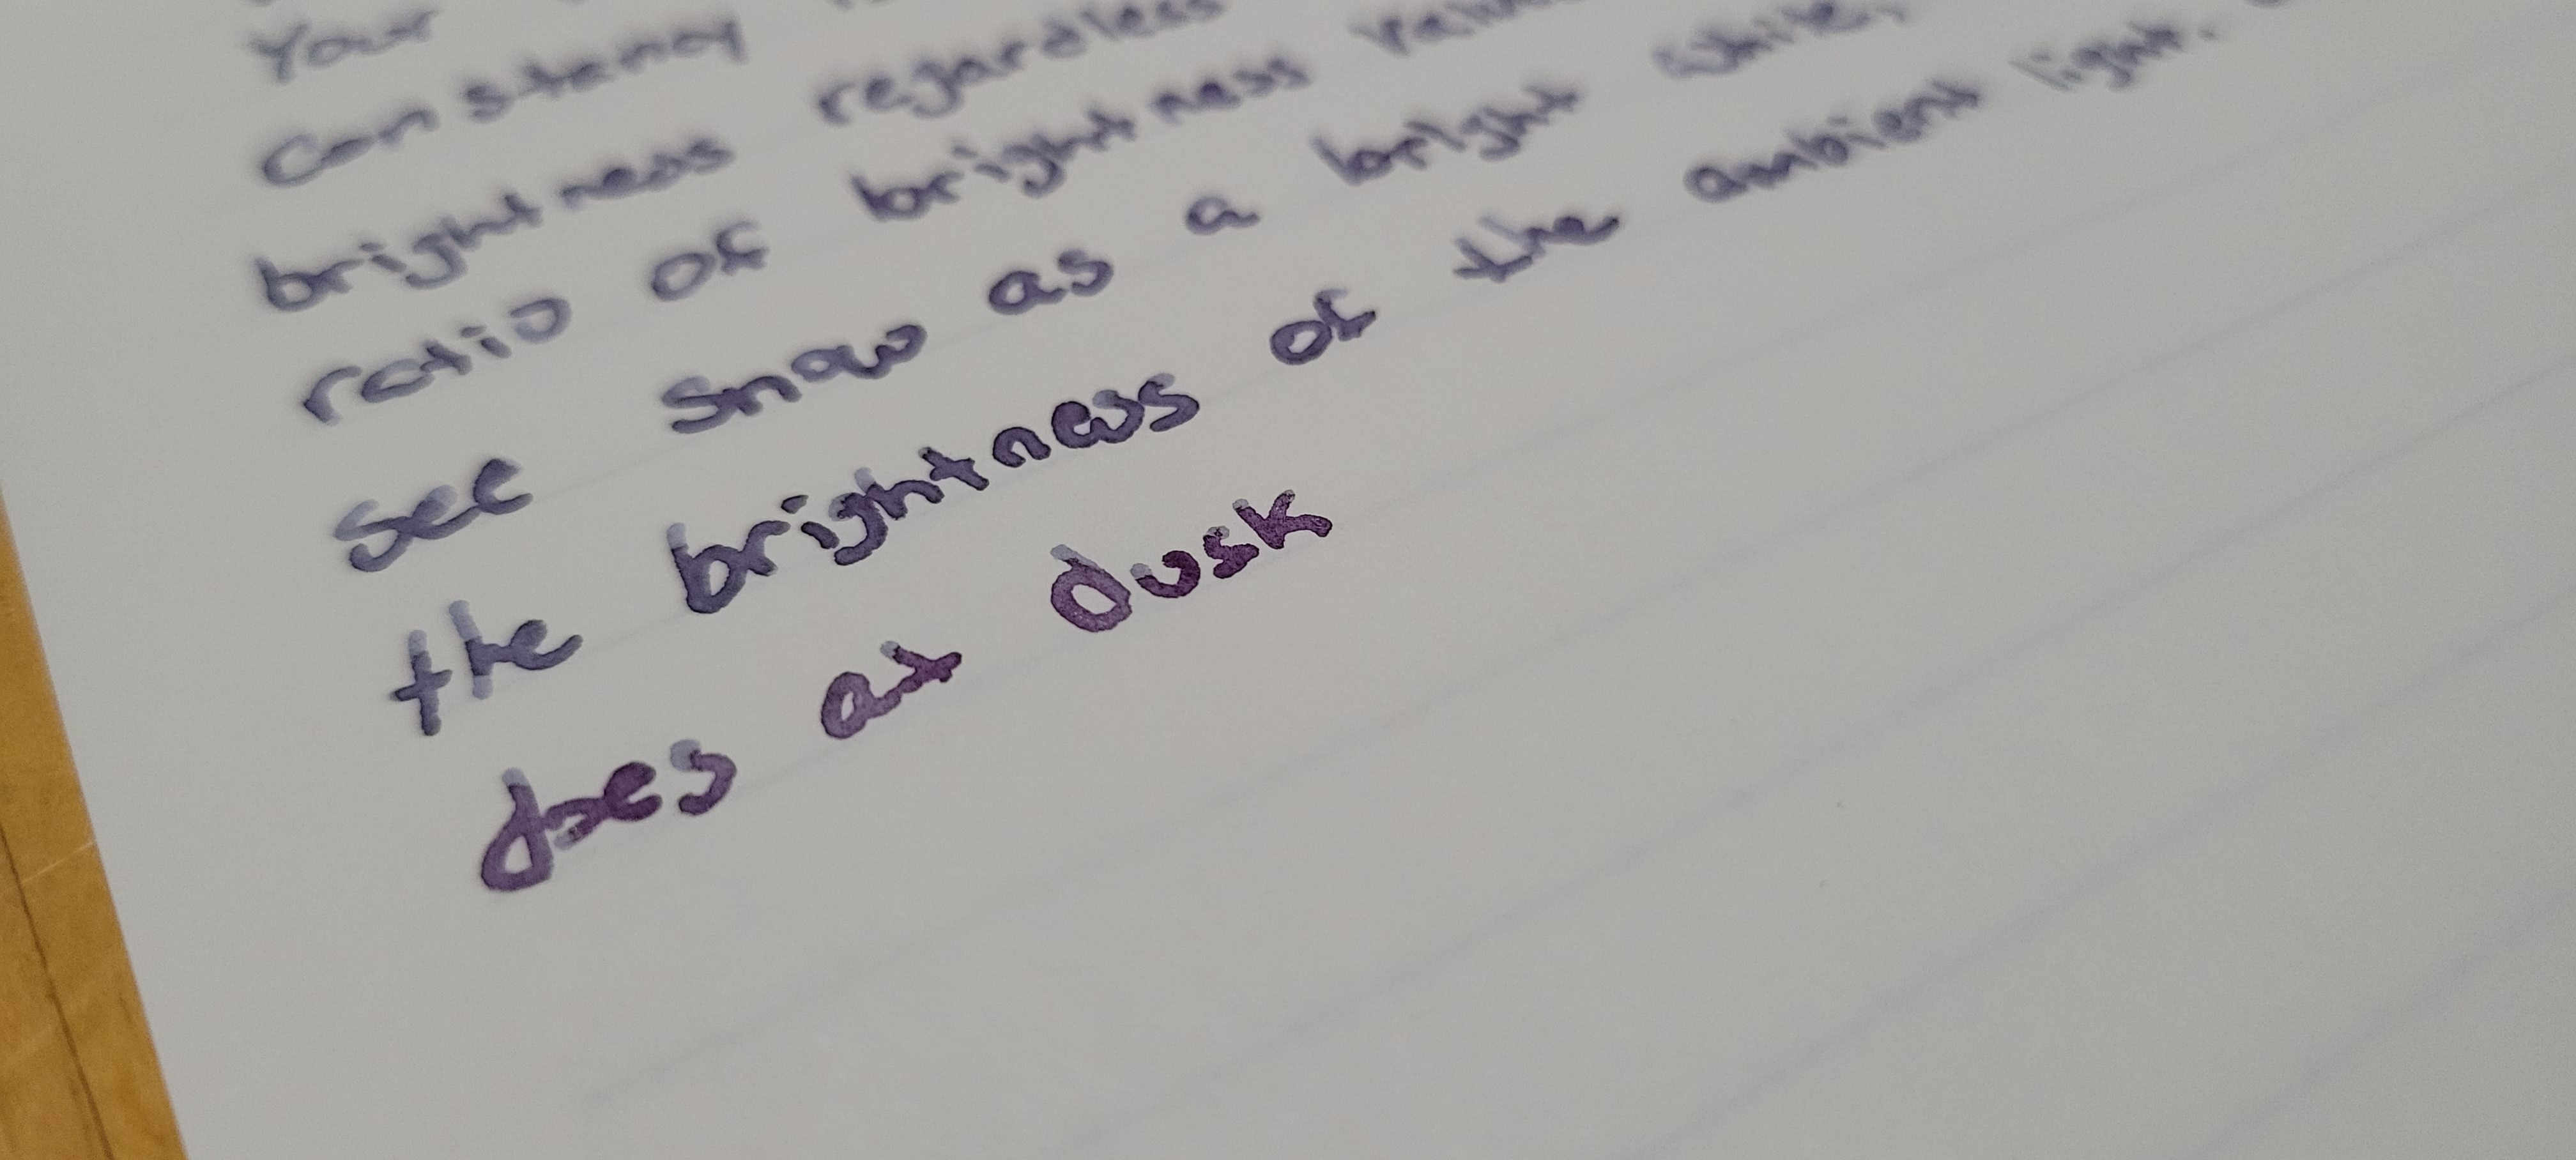 Your
Constancy
brightness regardless
ratio of brightness
see snow as a bright white,
the brightness of the ambient light.
does at dusk